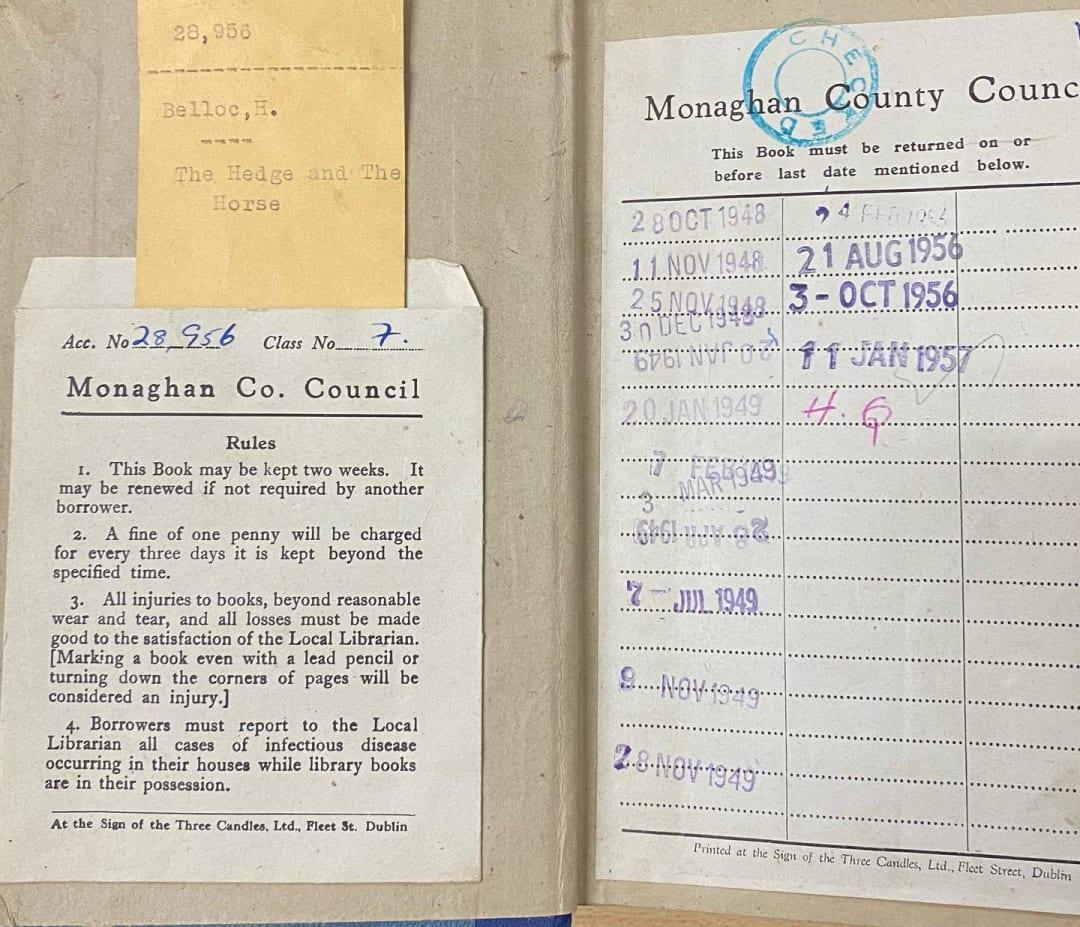 28,956
Belloc,H.
The Hedge and The
Horse
Acc. No 28,956 Class No. 7.
Monaghan Co. Council
Rules
1. This Book may be kept two weeks. It
may be renewed if not required by another
borrower.
2. A fine of one penny will be charged
for every three days it is kept beyond the
specified time.
3. All injuries to books, beyond reasonable
wear and tear, and all losses must be made
good to the satisfaction of the Local Librarian.
[Marking a book even with a lead pencil or
turning down the corners of pages will be
considered an injury.]
4. Borrowers must report to the Local
Librarian all cases of infectious disease
occurring in their houses while library books
are in their possession.
At the Sign of the Three Candles, Ltd., Fleet St. Dublin
CHECKED
Monaghan County Counc
This Book must be returned on or
before last date mentioned below.
28 OCT 1948
11 NOV 1948
25 NOV 1948
30 DEC 1948
20 JAN 1949
20 JAN 1949
7 FEB 1949
3 MAR 1949
28 APR 1949
7 - JUL 1949
9 NOV 1949
28 NOV 1949
4 FEB
21 AUG 1956
3 - OCT 1956
11 JAN 1957
H. G
Printed at the Sign of the Three Candles, Ltd., Fleet Street, Dublin